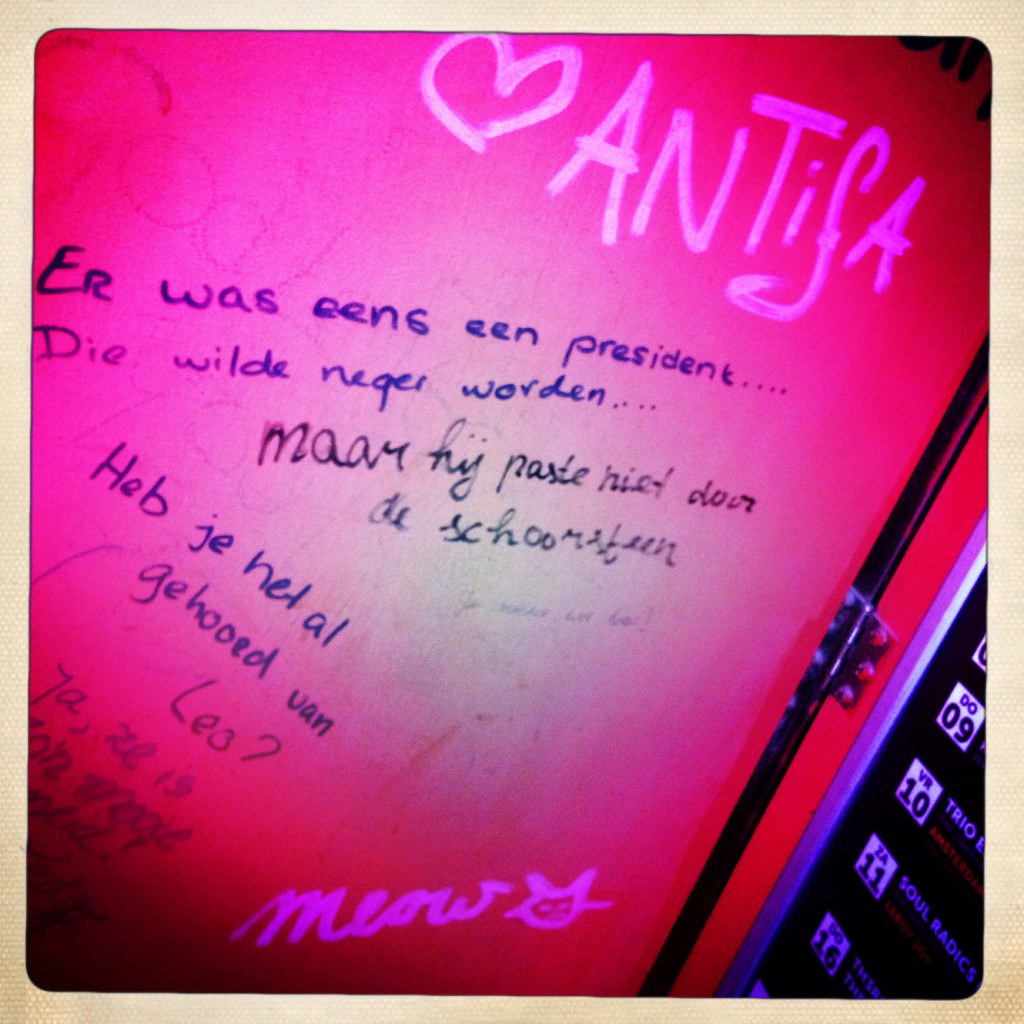 ♡ ANTifA
ER was eens een president....
Die wilde neger worden....
maar hij paste niet door
de schoorsteen
Heb je het al
gehoord van
Leo?
Ja, ze is
meow
DO 09
VR 10 TRIO
AMSTERDA
ZA 11 SOUL RADICS
LEROY JOY
DO 16